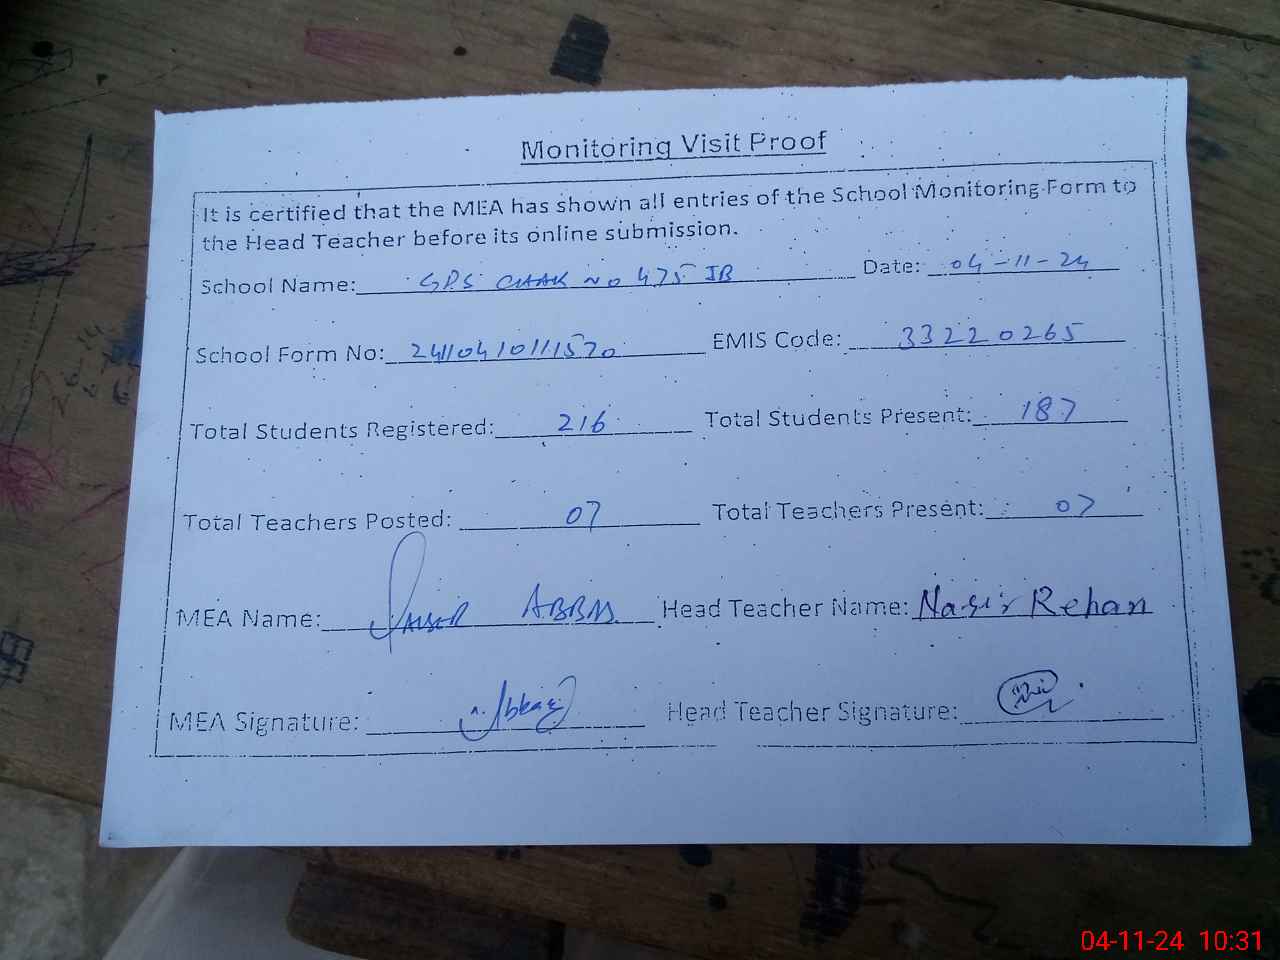 Monitoring Visit Proof
It is certified that the MEA has shown all entries of the School Monitoring Form to
the Head Teacher before its online submission.
School Name: GPS CHAK NO 475 JB Date: 04-11-24
School Form No: 24110410111570 EMIS Code: 33220265
Total Students Registered: 216 Total Students Present: 187
Total Teachers Posted: 07 Total Teachers Present: 07
MEA Name: ABBAS Head Teacher Name: Nasir Rehan
MEA Signature: Head Teacher Signature:
04-11-24 10:31